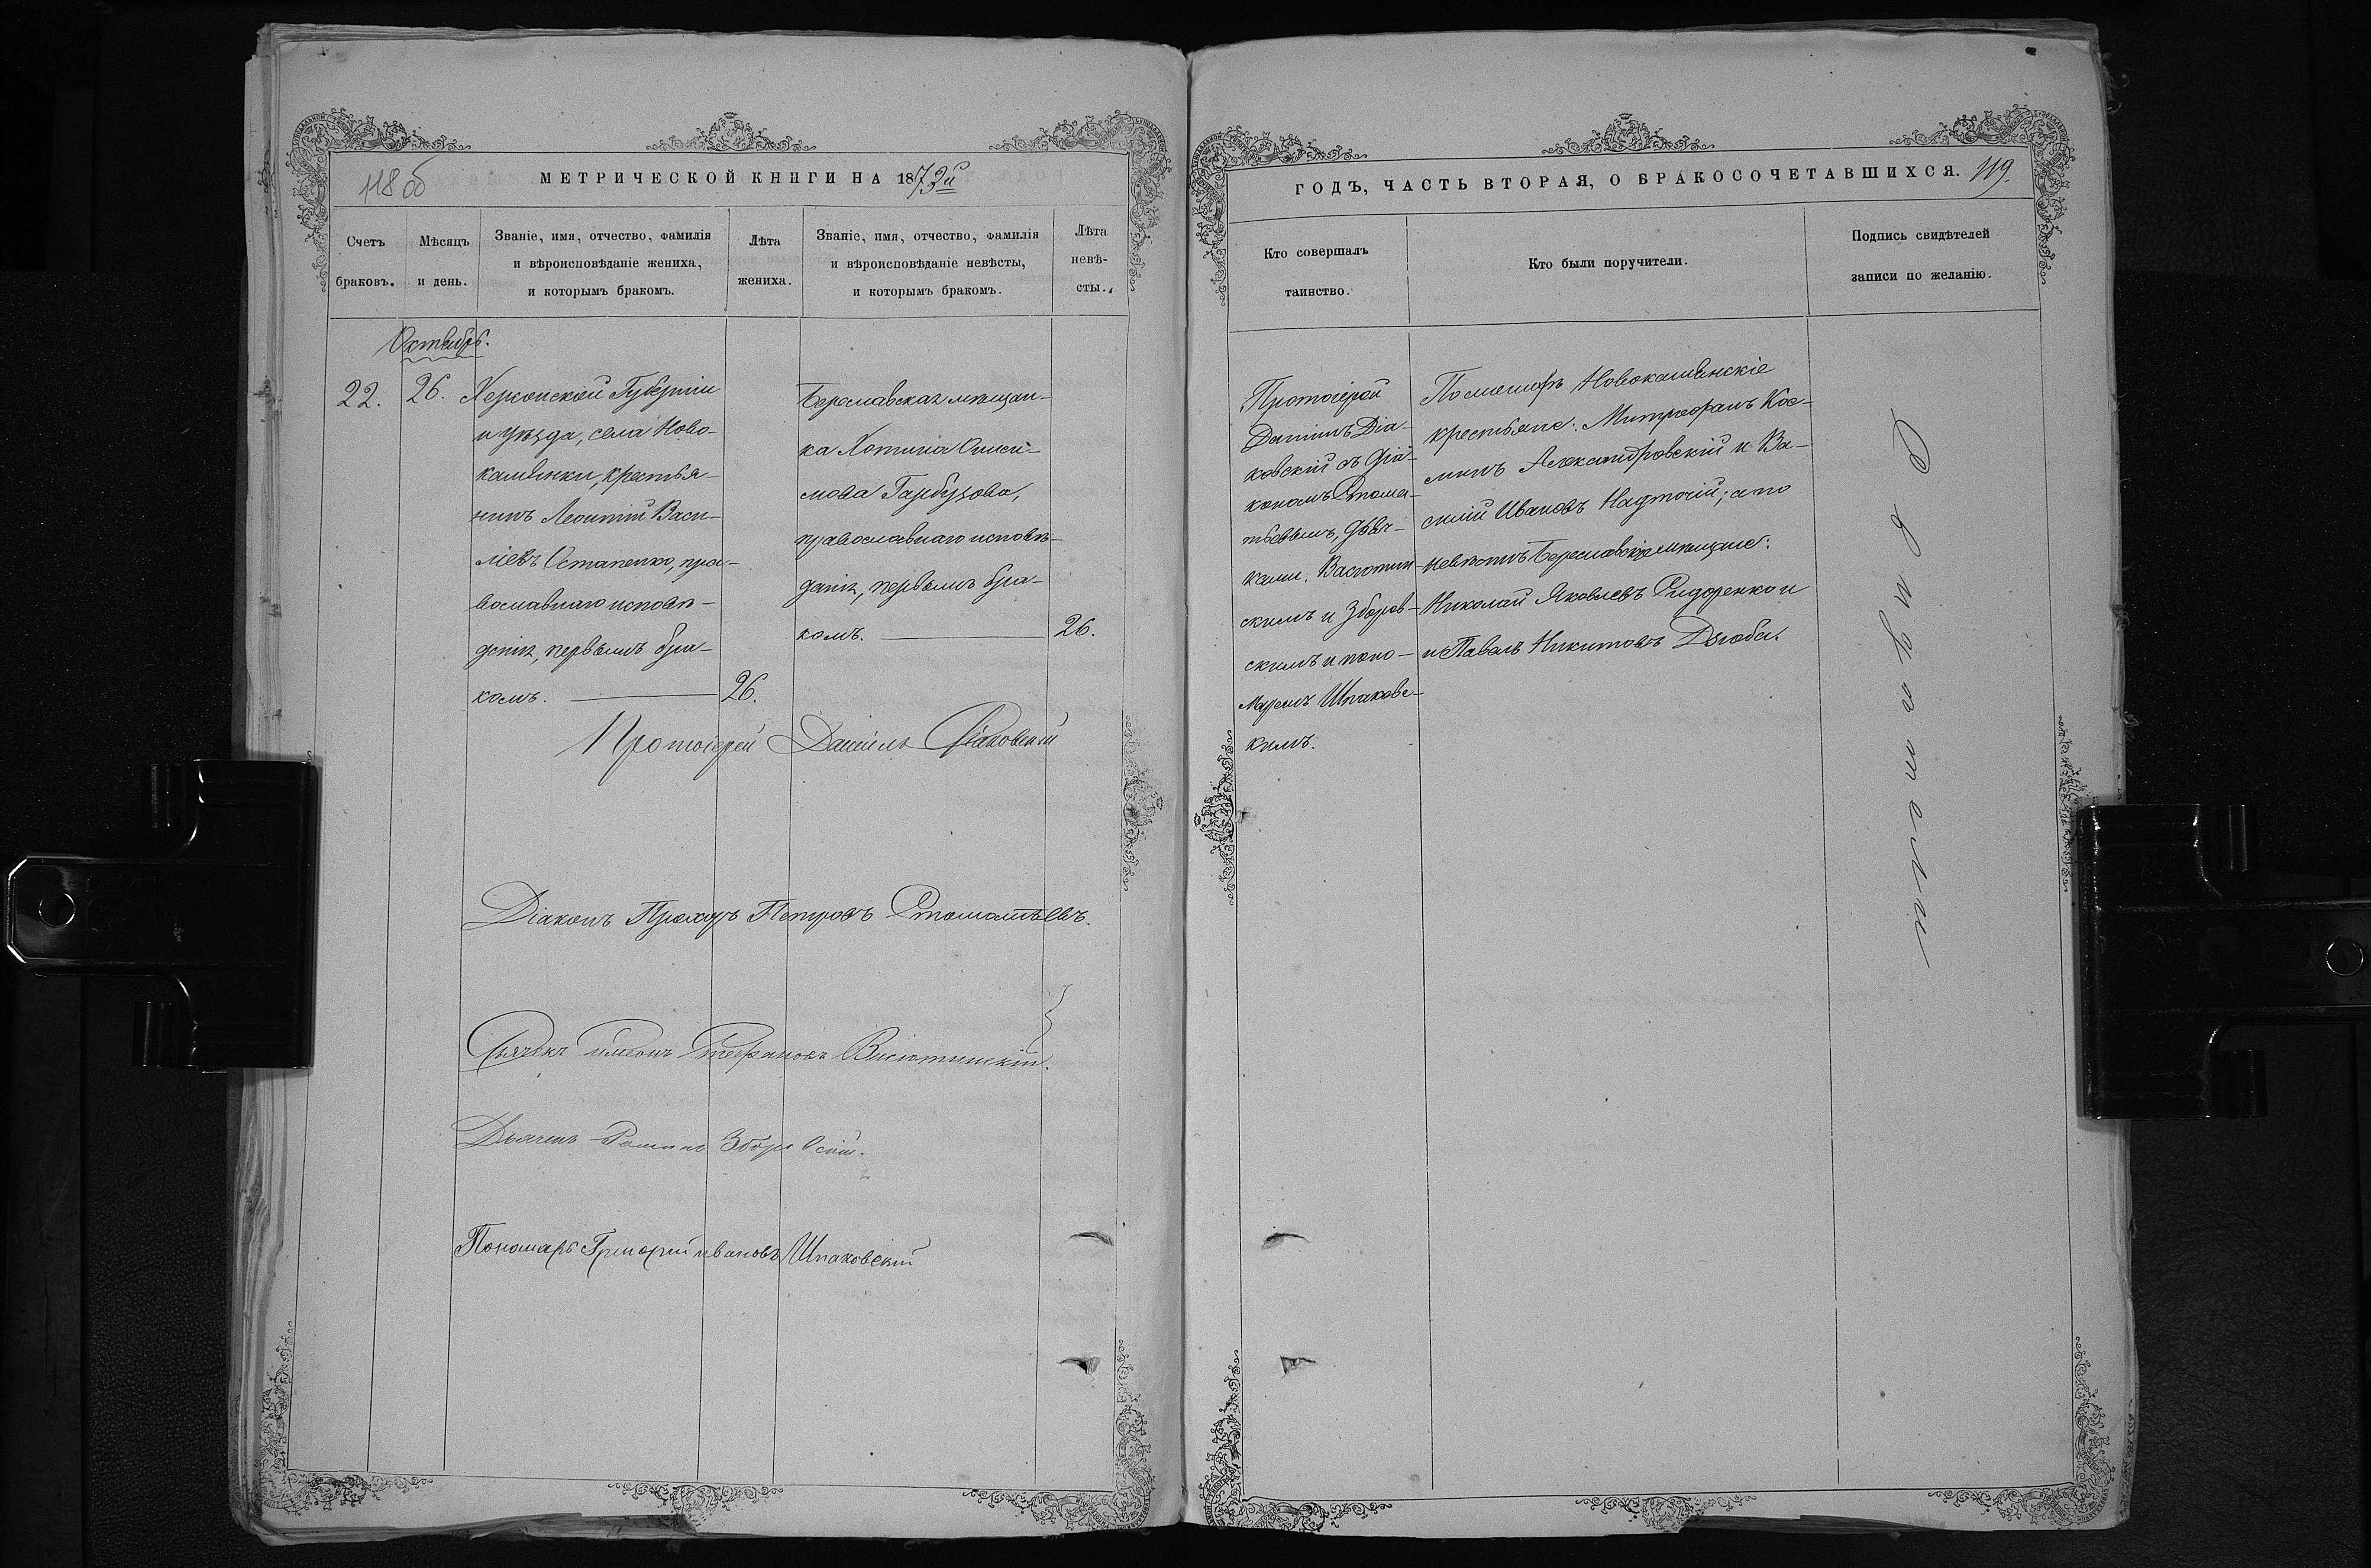 118 об
МЕТРИЧЕСКОЙ КНИГИ НА 1873й
Счетъ браковъ.
Мѣсяцъ и день.
Званіе, имя, отчество, фамилія
и вѣроисповѣданіе жениха,
и которымъ бракомъ.
Лѣта жениха.
Званіе, имя, отчество, фамилія
и вѣроисповѣданіе невѣсты,
и которымъ бракомъ.
Лѣта невѣ-
сты.
Октябрь.
22. 26.
Херсонской Губерніи
и уѣзда, села Ново-
каменки, крестья-
нинъ Леонтій Васи-
ліевъ Остапенко, пра-
вославнаго исповѣ-
данія, первымъ бра-
комъ. 26.
Береславская мѣщан-
ка Хотина
мова Гарбузова,
православнаго исповѣ-
данія, первымъ бра-
комъ. 26.
Протоіерей Даніилъ Діаковскій
Діаконъ Прохоръ Петровъ Стоматьевъ.
Дьячекъ Стефановъ
Дьячекъ Зборовскій.
Пономарь Григорій Ивановъ Шпаковскій
ГОДЪ, ЧАСТЬ ВТОРАЯ, О БРАКОСОЧЕТАВШИХСЯ. 119.
Кто совершалъ
таинство.
Кто были поручители.
Подпись свидѣтелей
записи по желанію.
Протоіерей
Даніилъ Діа-
ковскій съ діа-
кономъ Стома-
тьевымъ, дьяч-
ками:
скимъ и Зборов-
скимъ и поно-
маремъ Шпаковс-
кимъ.
По женихѣ Новокаменскіе
крестьяне: Митрофанъ Кос-
минъ Александровскій и Ва-
силій Ивановъ Надточій; а по
невѣстѣ Береславскіе мѣщане:
Николай Яковлевъ Сидоренко и
и Павелъ Никитовъ Дзюба.